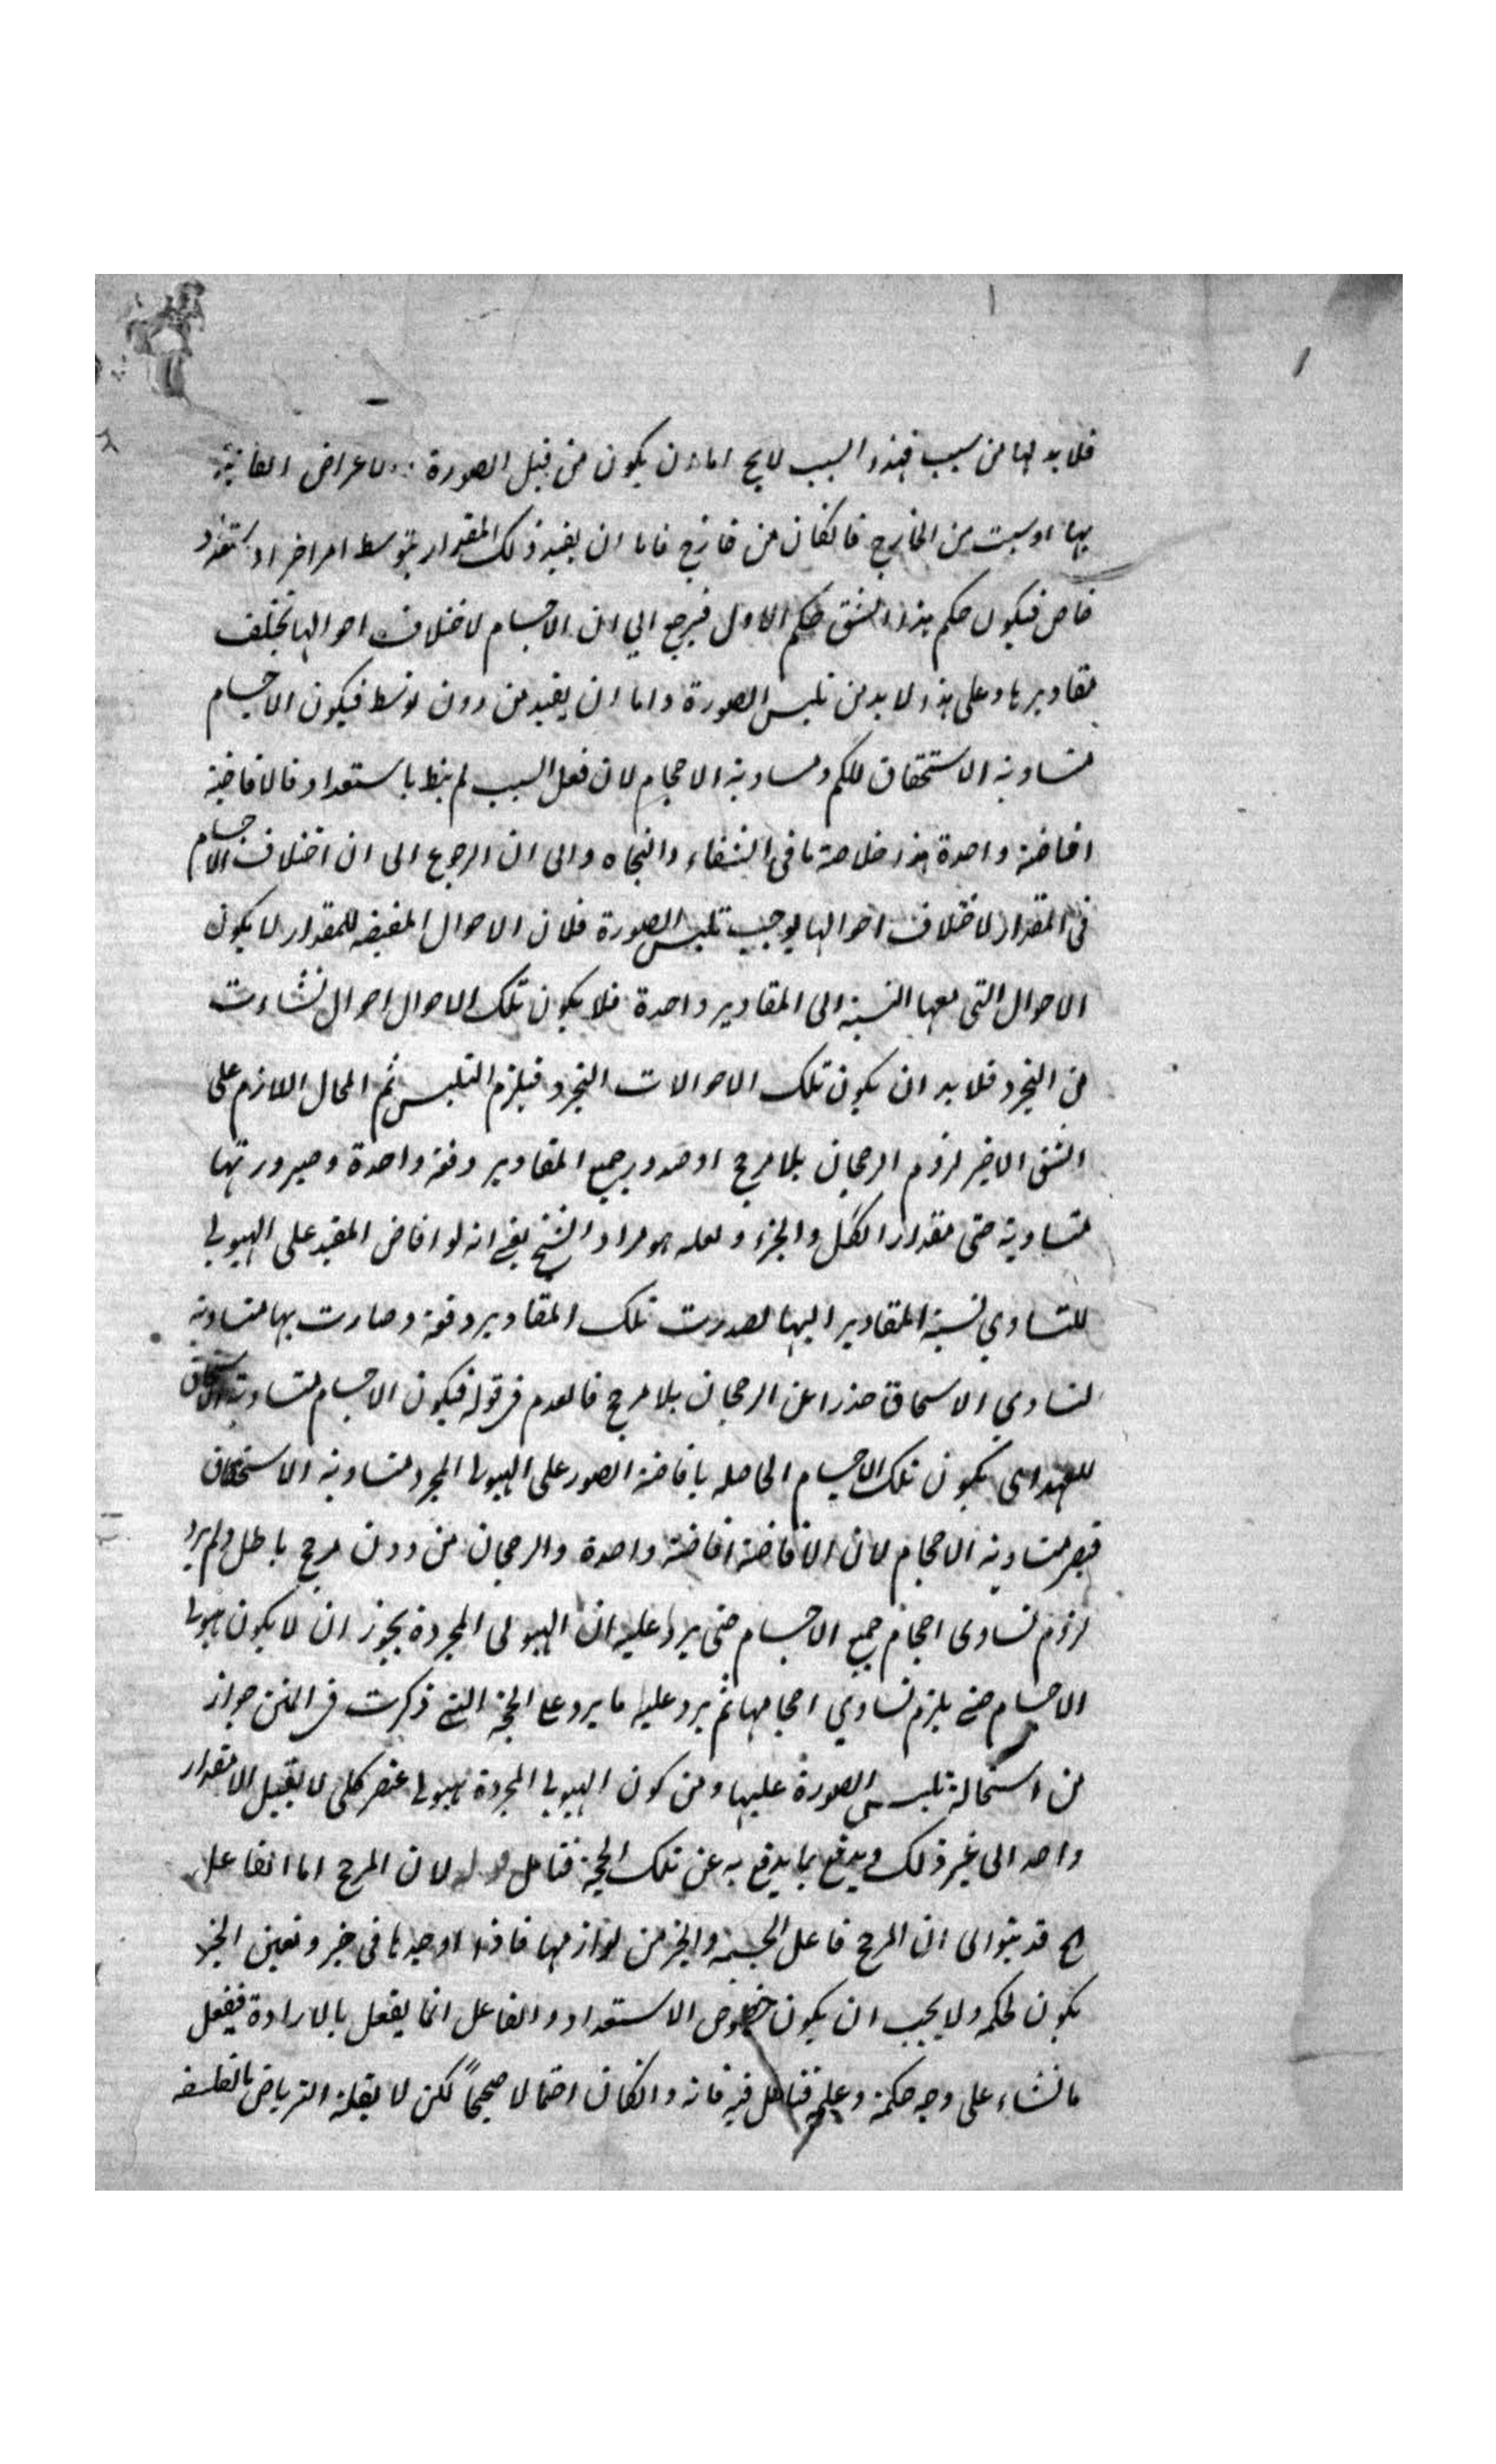 فلا بد لها من سبب فهذا السبب لا يخ اما ان يكون من قبل الصورة والاعراض
بها او سبب من الخارج فانكان من خارج فاما ان يفيد ذلك المقدار بتوسط امر اخر او استعداد
خاص فيكون حكم هذا الشق حكم الاول فيرجع الي ان الاجسام لاختلاف احوالها تختلف
مقاديرها وعلى هذا لا بد من تلبس الصورة واما ان يفيد من دون توسط فيكون الاجسام
متساوية الاستحقاق للكم ومساوية الاحجام لان فعل السبب لم ينط باستعداد فالافاضة
افاضة واحدة هذا خلاصة ما في الشفاء والنجاه والى ان الرجوع الى ان اختلاف الاجسام
في المقدار لاختلاف احوالها يوجب تلبس الصورة فلان الاحوال المفيضه للمقدار لا يكون
الاحوال التي معها النسبة الى المقادير واحدة فلا يكون تلك الاحوال احوال نشاءت
من التجرد فلا بد ان يكون تلك الاحوالات التجرد فيلزم التلبس ثم المحال اللازم على
الشق الاخير لزوم الرجحان بلا مرجح او صدور جميع المقادير دفعة واحدة وصيرورتها
متساوية حتى مقدار الكل والجزء ولعله هو مراد الشيخ يعني انه لو افاض المفيد على الهيولي
للتساوي نسبة المقادير اليها لصدرت تلك المقادير دفعة وصارت بها متساوية
لتساوي الاسحاق حذرا عن الرجحان بلا مرجح فالعدم في قوله فيكون الاجسام متساوية الاستحقاق
للعهد اى يكون تلك الاجسام الحاصله بافاضة الصور على الهيولى المجرد متساوية الاستحقاق
فيصير متساوية الاحجام لان الافاضة افاضة واحدة والرجحان من دون مرجح باطل ولم يرد
لزوم تساوى احجام جميع الاجسام حتى يرد عليه ان الهيولى المجردة يجوز ان لا يكون هيولى
الاجسام حتى يلزم تساوي احجامها ثم يرد عليه ما يرد على الحجة التي ذكرت في المتن جواز
من استحالة تلبس الصورة عليها ومن كون الهيولي المجردة هيولى عنصر كلى لا يقبل الا مقدار
واحد الى غير ذلك ويدفع بما يدفع به عن تلك الحجة فتامل قوله لان المرجح اما الفاعل
قد ينبو الى ان المرجح فاعل الجسمة والحيز من لوازمها فاذا اوجدها في حيز وتعين الحيز
يكون لحكمه ولا يجب ان يكون خصوص الاستعداد والفاعل انما يفعل بالارادة فيفعل
ما نشاء على وجه حكمة وعلم فتامل فيه فانه وانكان احتمالا صحيحاً لكن لا يقبله بالفلسفه